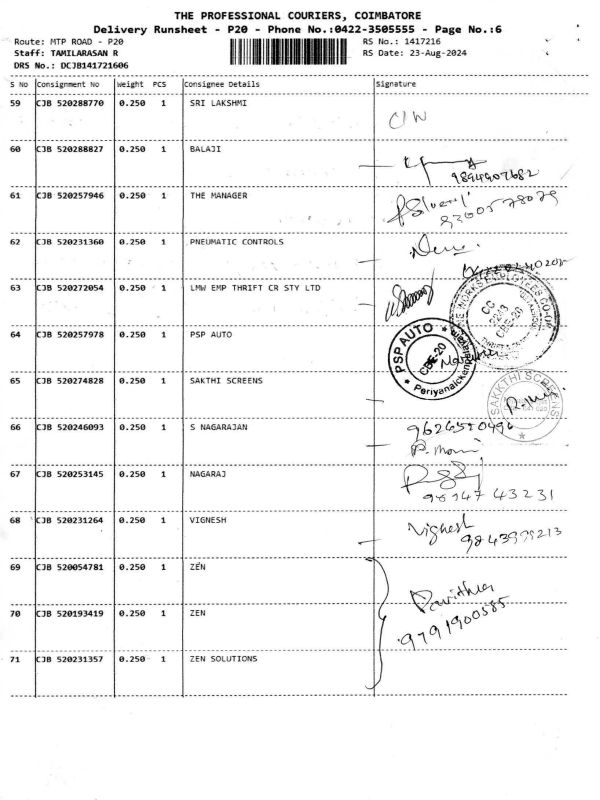 THE PROFESSIONAL COURIERS, COIMBATORE
Delivery Runsheet - P20 - Phone No.:0422-3505555 - Page No.:6
Route: MTP ROAD - P20 RS No.: 1417216
Staff: TAMILARASAN R RS Date: 23-Aug-2024
DRS No.: DCJB141721606
S No Consignment No Weight PCS Consignee Details Signature
59 CJB 520288770 0.250 1 SRI LAKSHMI
60 CJB 520288827 0.250 1 BALAJI
9894907682
61 CJB 520257946 0.250 1 THE MANAGER
9300578079
62 CJB 520231360 0.250 1 PNEUMATIC CONTROLS
63 CJB 520272054 0.250 1 LMW EMP THRIFT CR STY LTD
CC
CBE-20
64 CJB 520257978 0.250 1 PSP AUTO
PSP AUTO
CBE-20
Periyanaickenpalayam
65 CJB 520274828 0.250 1 SAKTHI SCREENS
SAKKTHI SCREENS
66 CJB 520246093 0.250 1 S NAGARAJAN
9626550496
P. mani
67 CJB 520253145 0.250 1 NAGARAJ
98947 43231
68 CJB 520231264 0.250 1 VIGNESH
Vignesh
69 CJB 520054781 0.250 1 ZEN
70 CJB 520193419 0.250 1 ZEN
Pavithra
9791900585
71 CJB 520231357 0.250 1 ZEN SOLUTIONS